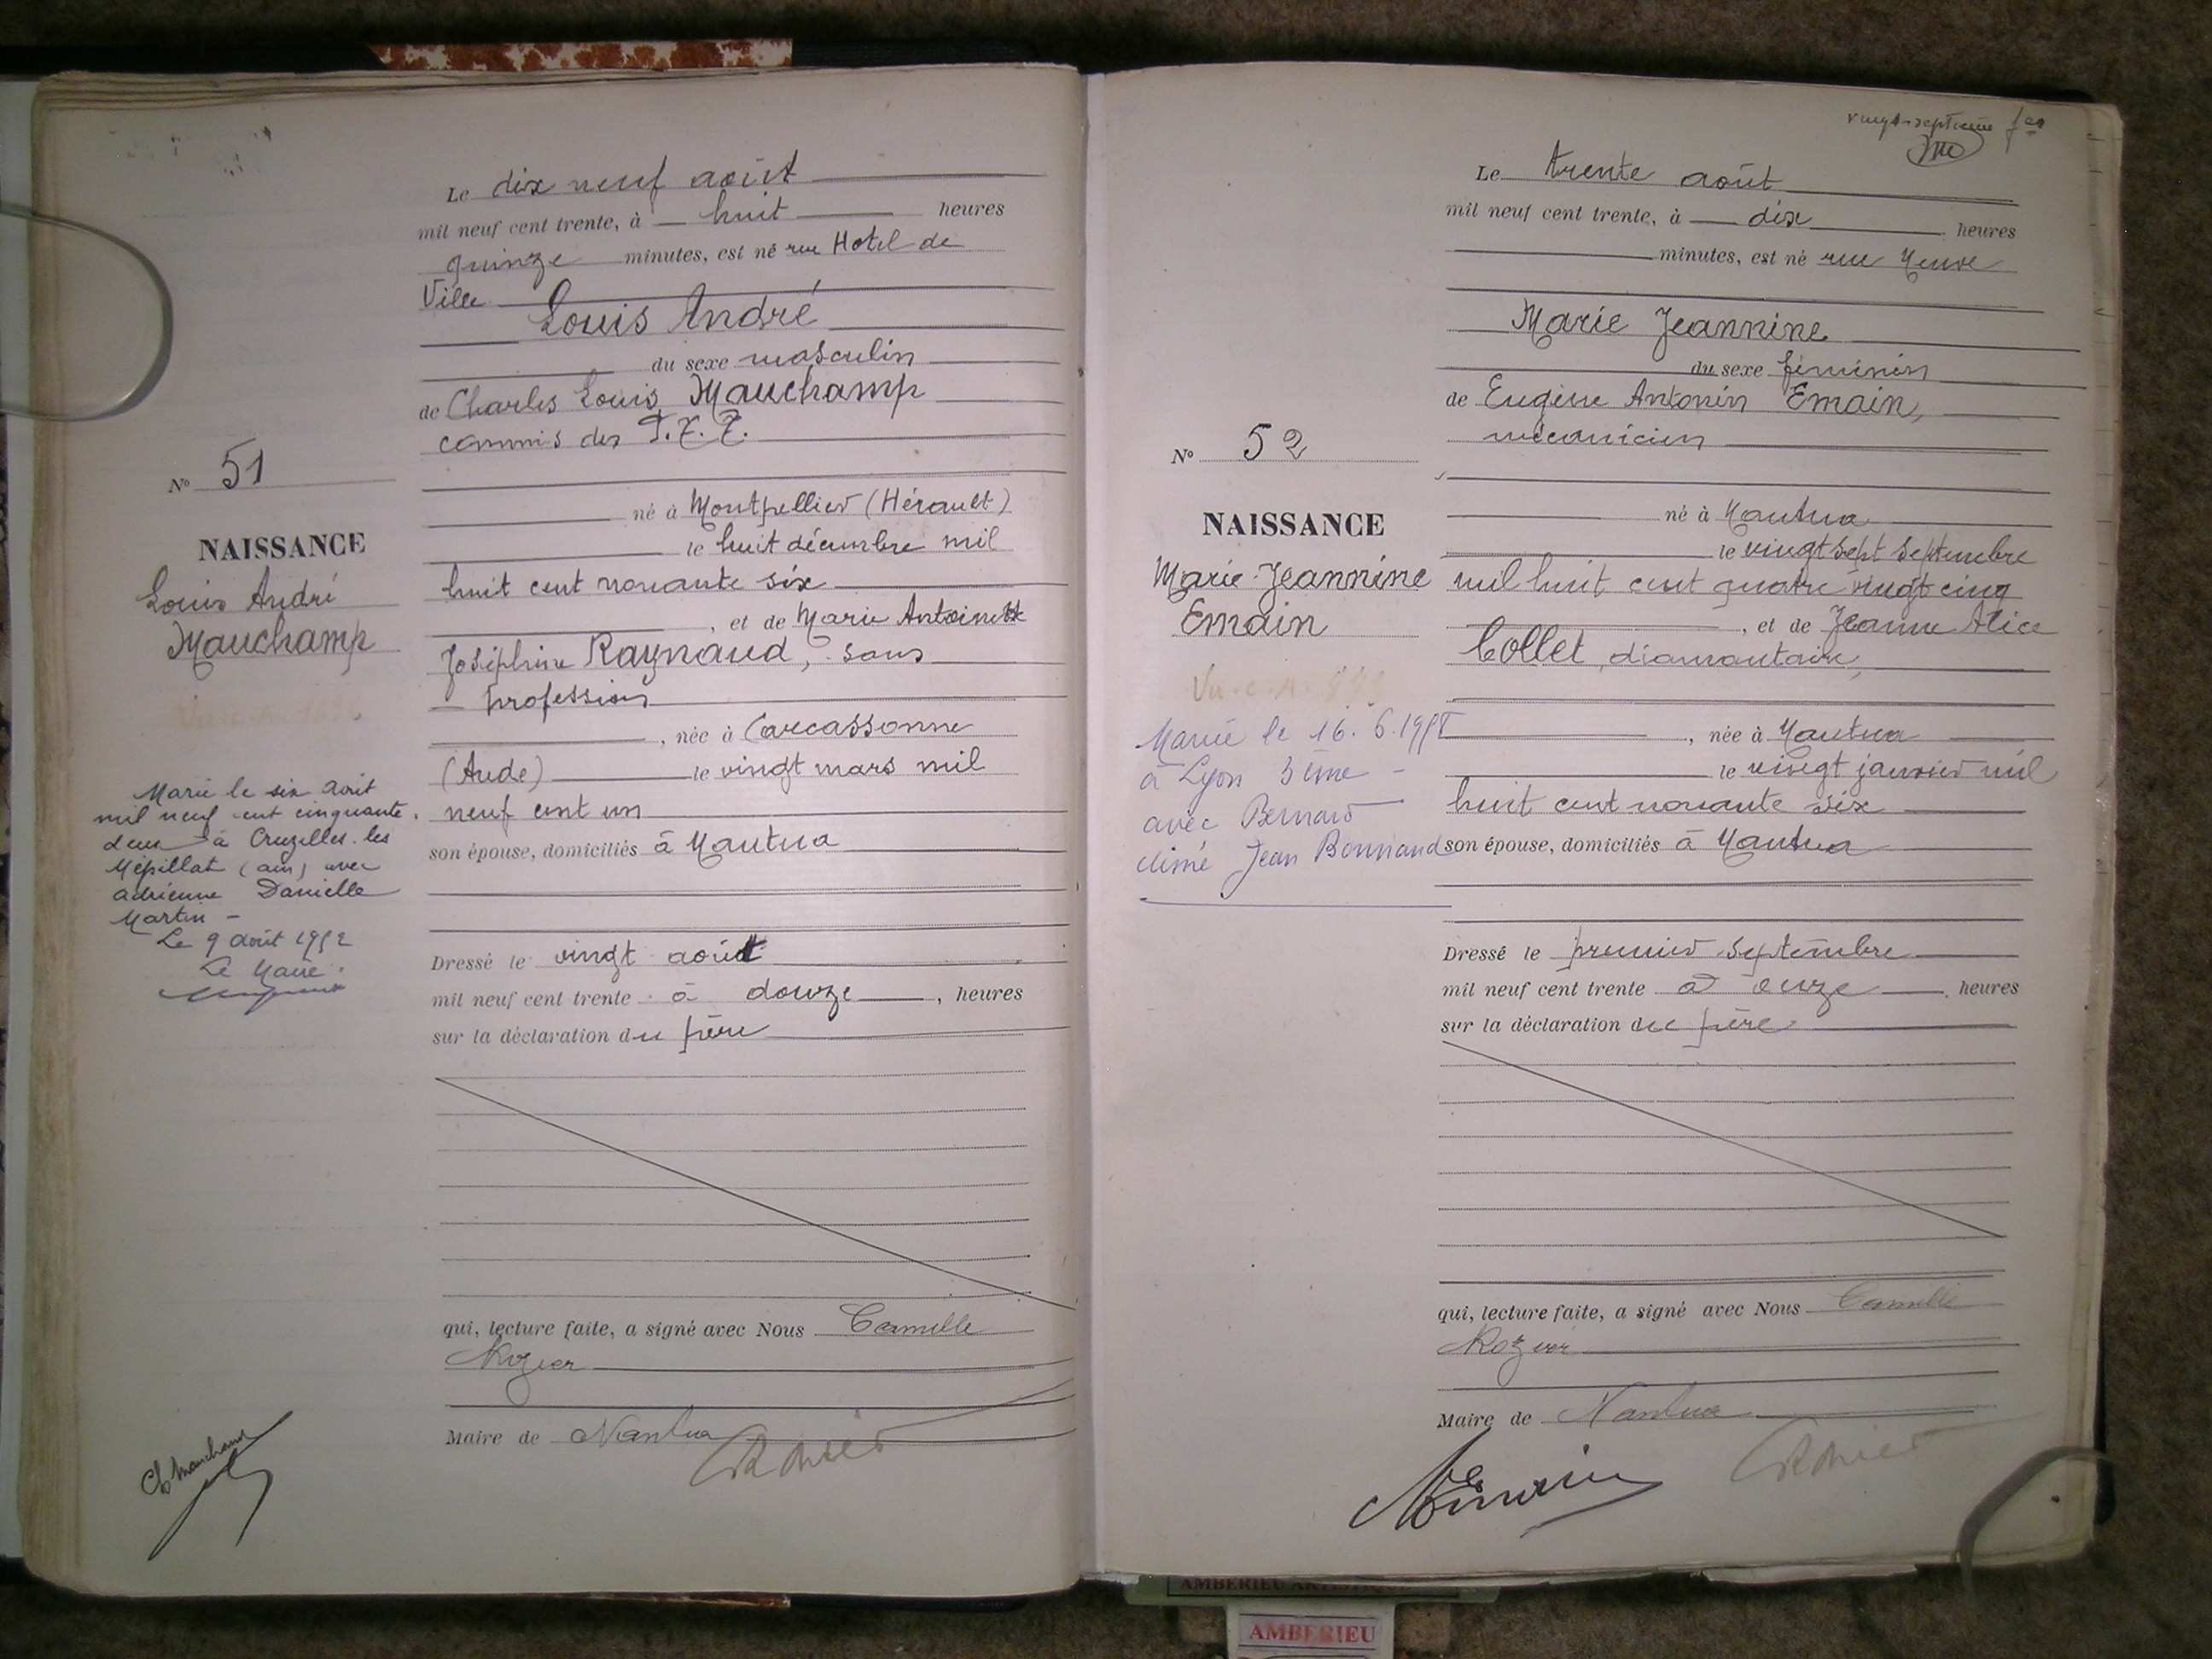 Le dix neuf août
mil neuf cent trente, à huit heures
quinze minutes, est né rue Hotel de
Ville
Louis André
du sexe masculin
de Charles Louis Mauchamp
commis des P.T.T.
né à Montpellier (Hérault)
le huit décembre mil
huit cent nonante six
, et de Marie Antoinette
Joséphine Raynaud, sans
profession
, née à Carcassonne
(Aude) le vingt mars mil
neuf cent un
son épouse, domiciliés à Nantua
Dressé le vingt août
mil neuf cent trente à douze, heures
sur la déclaration du père
qui, lecture faite, a signé avec Nous Camille
Rozier
Maire de Nantua
Nº 51
NAISSANCE
Louis André
Mauchamp
Marié le six août
mil neuf cent cinquante
deux à Cruzilles-les
Mépillat (ain) avec
adrienne Danielle
Martin -
Le 9 août 1952
Le Maire.
Ch Mauchamp
vingt-septième
Le trente août
mil neuf cent trente, à dix heures
minutes, est né rue Neuve
Marie Jeannine
du sexe féminin
de Eugène Antonin Emain,
mécanicien
né à Nantua
le vingt sept septembre
mil huit cent quatre vingt cinq
, et de Jeanne Alice
Collet, diamantaire,
, née à Nantua
le vingt janvier mil
huit cent nonante six
son épouse, domiciliés à Nantua
Dressé le premier septembre
mil neuf cent trente à onze heures
sur la déclaration du père
qui, lecture faite, a signé avec Nous Camille
Rozier
Maire de Nantua
Nº 52
NAISSANCE
Marie-Jeannine
Emain
Mariée le 16.6.
à Lyon 3ème -
avec Bernard
Aimé Jean Bonnand
Emain
AMBERIEU